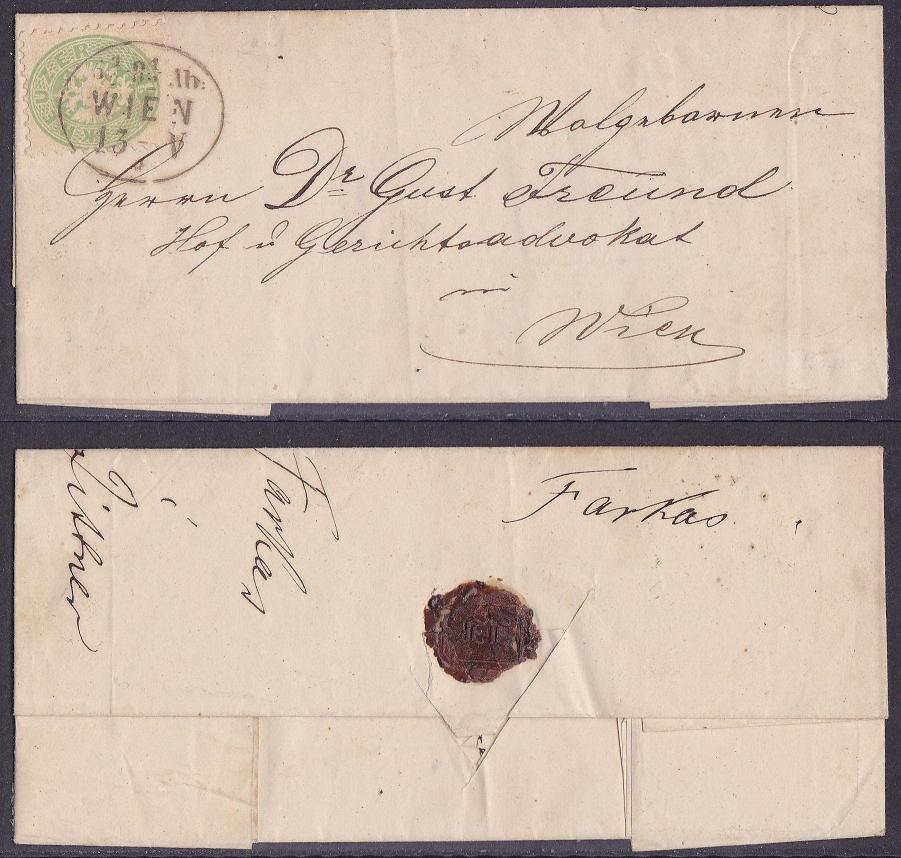 WIEN
Wolgebornen
Herrn Dr Gust Freund
Hof u Gerichtsadvokat
in
Wien
Farkas
Farkas